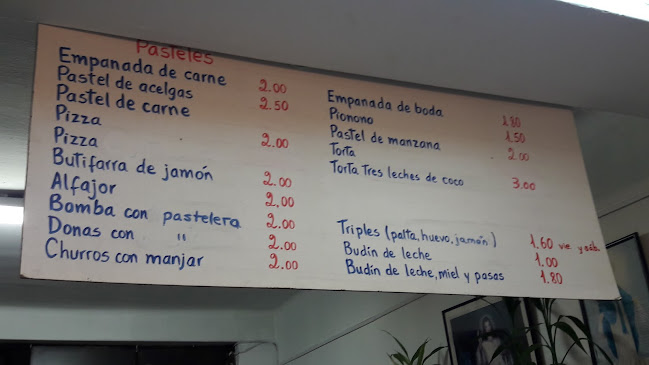 Pasteles
Empanada de carne 2.00
Pastel de acelgas 2.50
Pastel de carne
Pizza
Pizza 2.00
Butifarra de jamón 2.00
Alfajor 2.00
Bomba con pastelera 2.00
Donas con " 2.00
Churros con manjar 2.00
Empanada de boda 1.80
Pionono 1.50
Pastel de manzana 2.00
Torta
Torta Tres leches de coco 3.00
Triples (palta, huevo, jamón) 1.60 vie y sáb.
Budín de leche 1.00
Budín de leche, miel y pasas 1.80